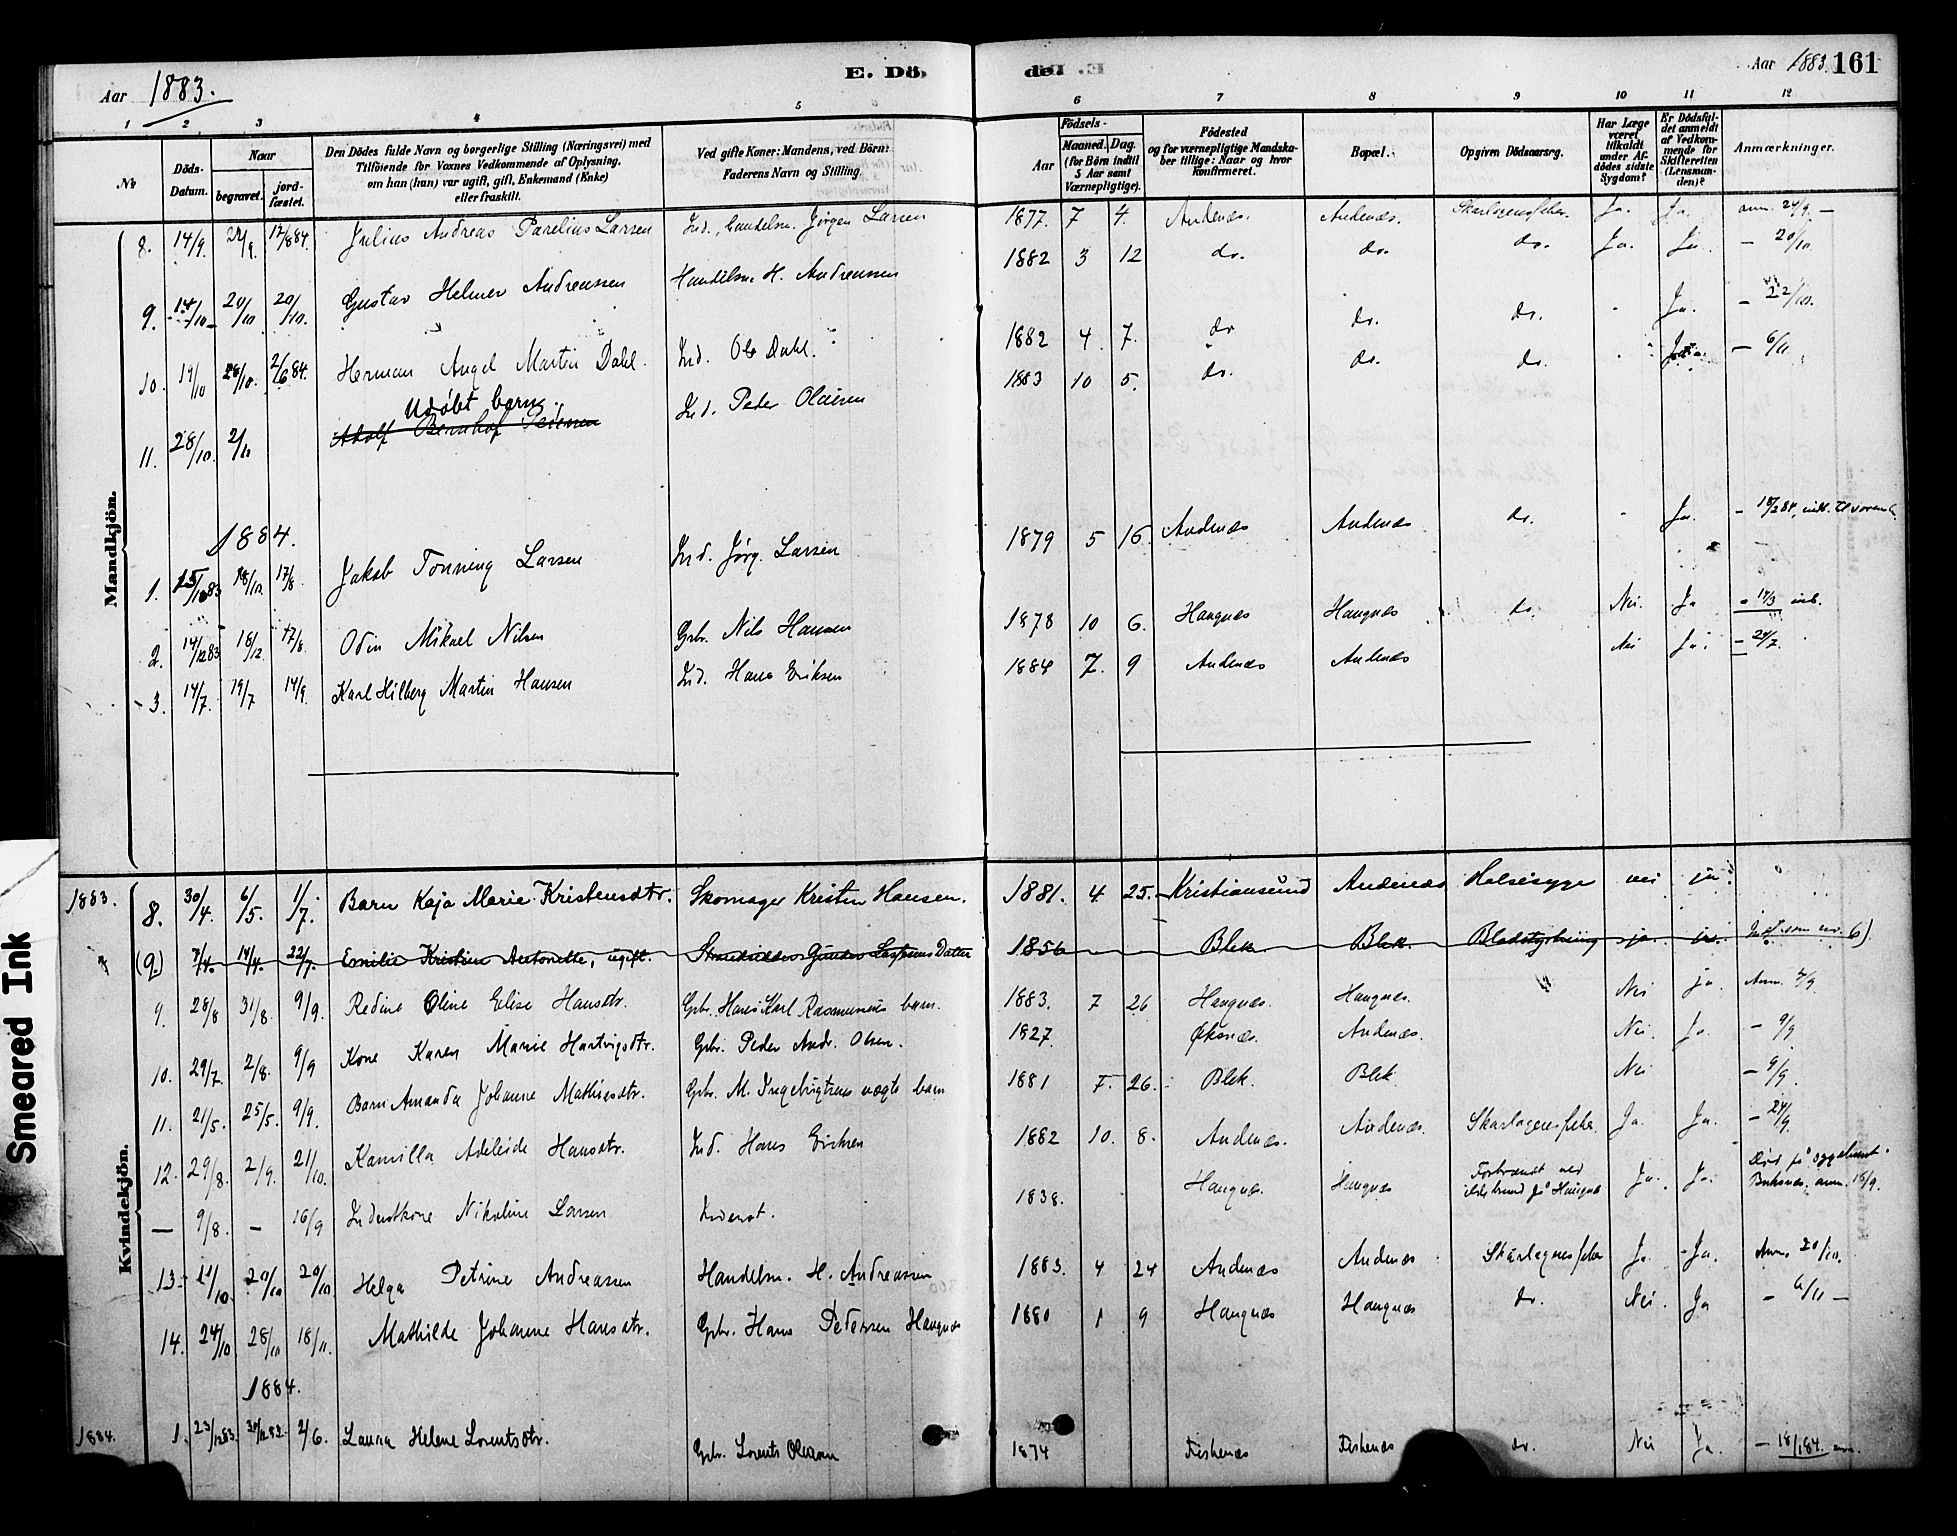 Aar 1883.
E. Dö
de
Aar 1883. 161
1 2 3 4 5 6 7 8 9 10 11 12
No.
Döds-Datum.
Naar
begravet.
jord-fæstet.
Den Dödes fulde Navn og borgerlige Stilling (Næringsvei) med
Tilföiende for Voxnes Vedkommende af Oplysning,
om han (hun) var ugift, gift, Enkemand (Enke)
eller fraskilt.
Ved gifte Koner: Mandens, ved Börn:
Faderens Navn og Stilling.
Födsels-
Aar
Maaned. Dag.
(for Börn indtil
5 Aar samt
Værnepligtige).
Födested
og for værnepligtige Mandska-
ber tillige: Naar og hvor
konfirmeret.
Bopæl.
Opgiven Dödsaarsag.
Har Læge
været
tilkaldt
under Af-
dödes sidste
Sygdom?
Er Dödsfal-
det anmeldt
af Vedkom-
mende for
Skifteretten
(Lensman-
den)?
Anmærkninger.
Mandkjön.
8. 14/9. 22/9. 17/8 84. Julius Andreas Parelius Larsen Ind., handelsm. Jörgen Larsen 1877. 7 4. Andenæs. Andenæs. Skarlagensfeber. Ja. Ja. anm. 24/9. —
9. 14/10 20/10 20/10. Gustav Helmer Andreassen Handelsm. H. Andreassen 1882 3 12 do. do. do. Ja. Ja. — 20/10.
10. 19/10 28/10. 2/6 84. Herman Angel Martin Dahl. Ind. Ole Dahl. 1882 4. 7. do do. do. Ja. — 22/10.
Udøbt barn.
11. 28/10. 2/11 Adolf Bernhof Pedersen Ind. Peder Olaisen 1883 10 5. do. do. do. Ja. — 6/11.
1884.
1. 15/10 83 18/10. 17/8 Jakob Tonning Larsen Ind. Jørg. Larsen 1879 5 16. Andenæs Andenæs do. Ja. — 18/2 84,
2. 14/12 83 18/12 17/8. Odin Mikael Nilsen Gbr. Nils Hansen 1878 10 6. Haugnæs Haugnæs do. Nei. Ja — 17/3
3. 14/7. 19/7 14/9. Karl Hilberg Martin Hansen Ind. Hans Eriksen 1884 7. 9 Andenæs Andenæs Nei Ja. — 20/7.
Kvindekjön.
1883. 8. 30/4. 6/5. 1/7. Barn Kaja Marie Kristensdtr. Skomager Kristen Hansen. 1881. 4. 25. Kristiansund Andenæs Halsesyge nei ja.
(9.) 7/4. 14/4. 22/7. Emilie Kristine Antonette, ugift. Datter 1856 Blek Blek. Blodstyrtning ja. ja. Indf. som no. 6).
9. 28/8 31/8. 9/9. Redine Oline Elise Hansdtr. Gbr. Hans Karl Rasmussens barn. 1883. 7 26 Haugnæs. Haugnæs. Nei ja. Anm. 4/9.
10. 29/7. 2/8. 9/9 Kone Karen Marie Hartvigsdtr. Gbr. Peder Andr. Olsen. 1827. Øksnæs. Andenæs. Nei. Ja — 9/9
11. 21/5. 25/5. 9/9. Barn Amanda Johanne Mathisdtr. Gbr. M. Ingebrigtsens ægte barn 1881 5. 26. Blek. Blek Nei — 9/9.
12. 29/8. 2/9. 21/10. Kamilla Adeleide Hansdtr. Ind. Hans Eriksen 1882 10. 8. Andenæs. Andenæs. Skarlagensfeber. Ja. Ja. — 24/9.
— 9/8. — 16/9 Inderstkone Nikoline Larsen Inderst. 1838. Haugnæs. Haugnæs Forbrændt ved ildebrand på Haugnæs Ja. Ja. Død på sygehuset Buksnæs, anm. 16/9.
13. 14/10. 20/10 20/10 Helga Petrine Andreassen Handelsm. H. Andreassen 1883. 4 24 Andenæs Andenæs Skarlagensfeber Ja. Ja. Anm. 20/10.
14. 24/10 28/10 18/11. Mathilde Johanne Hansdtr. Gbr. Hans Pedersen Haugnæs 1880 1 9 Haugnæs Haugnæs do. Nei. Ja — 6/11 —
1884.
1884. 1. 23/12 83. 30/12 83. 2/6. Laura Helene Lorentsdtr. Gbr. Lorents Olausen 1874 Fiskenæs Fiskenæs do. Nei Ja. — 18/1 84. anm.
Smeared Ink